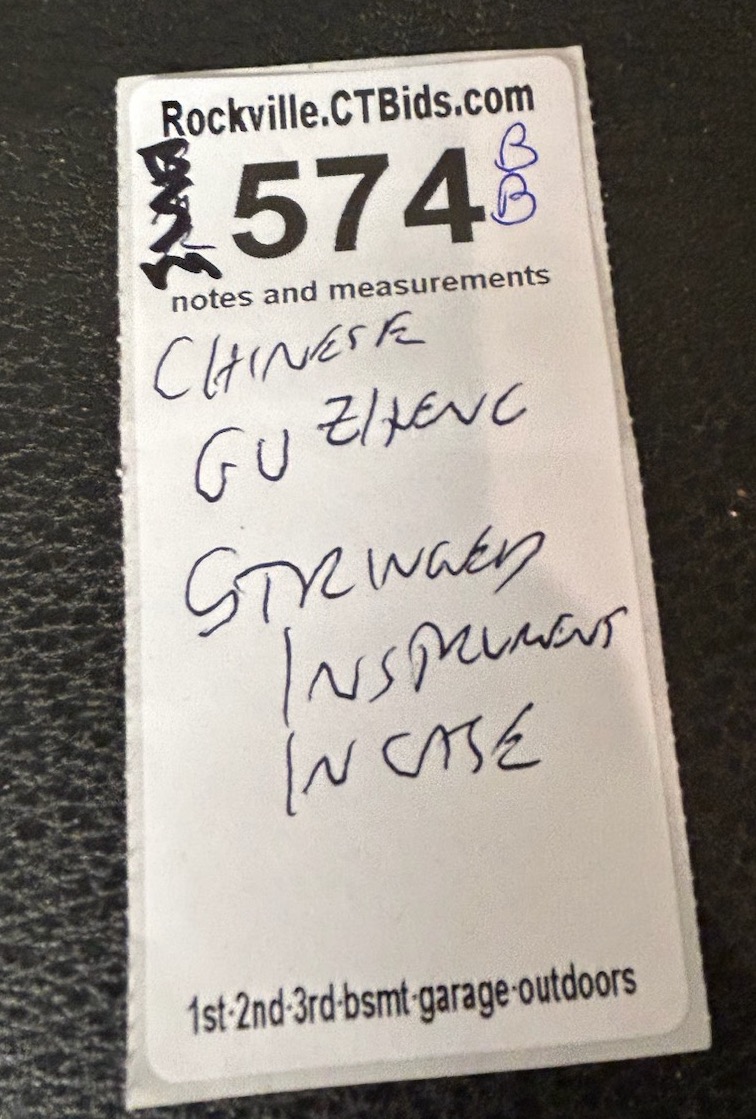 Rockville.CTBids.com
574 B
B
notes and measurements
CHINESE
GU ZHENG
STRINGED
INSTRUMENT
IN CASE
1st·2nd·3rd·bsmt·garage·outdoors